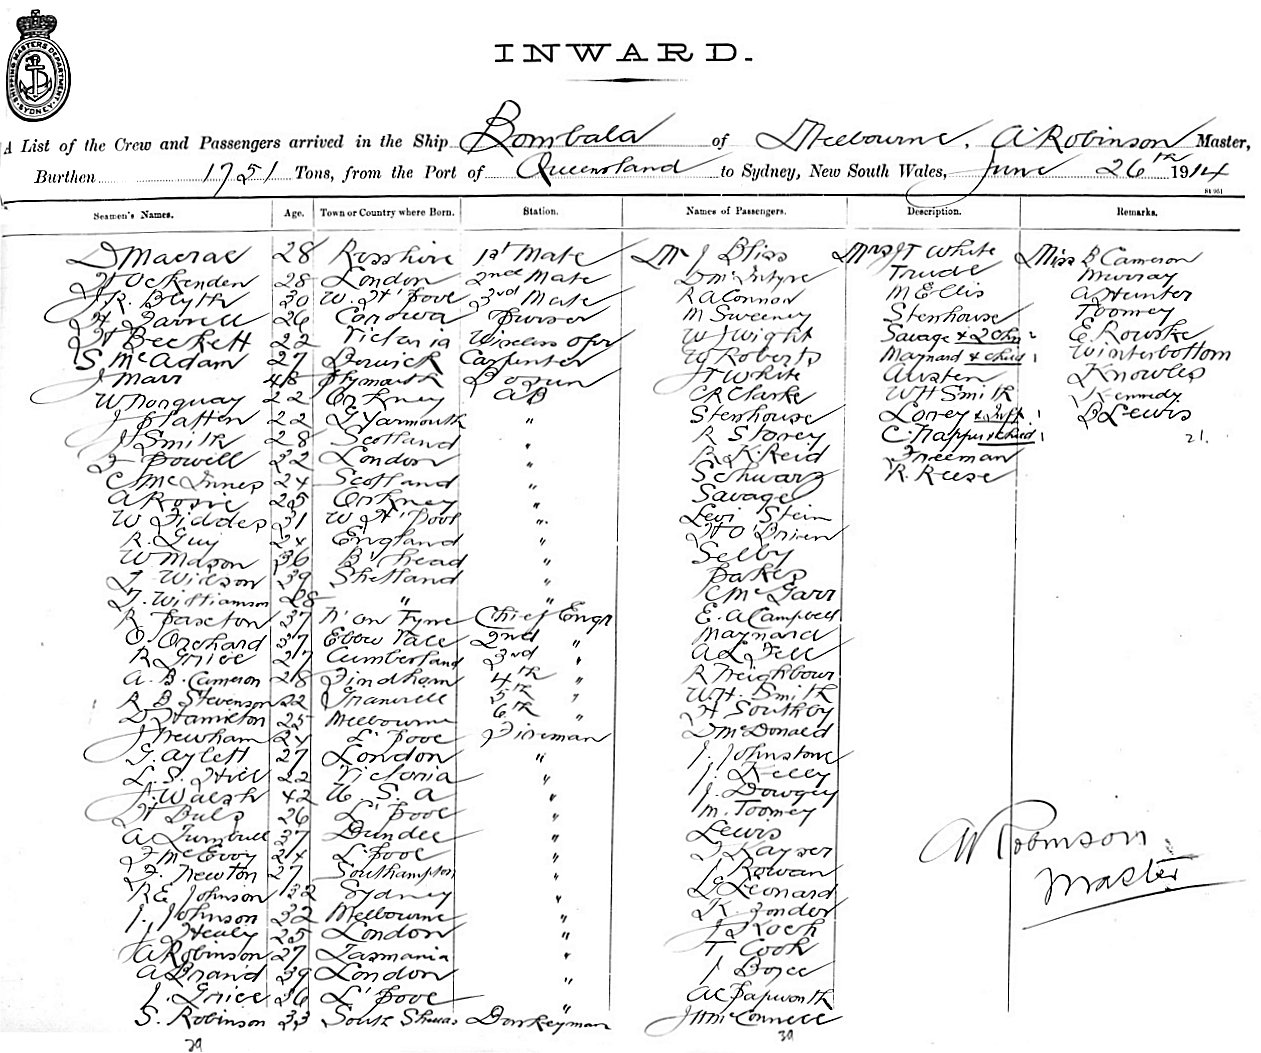 SHIPPING MASTERS DEPARTMENT SYDNEY
INWARD.
A List of the Crew and Passengers arrived in the Ship Bombala of Melbourne, A. Robinson Master,
Burthen 1751 Tons, from the Port of Queensland to Sydney, New South Wales, June 26th 1914
Seamen's Names. Age. Town or Country where Born. Station. Names of Passengers. Description. Remarks.
D Macrae 28 Rosshire 1st Mate Mr J Bliss Mrs J T White Miss B Cameron
H Ockenden 28 London 2nd Mate D McIntyre Trude Murray
J. R. Blyth 30 W. H'pool 3rd Mate R A Connon M Ellis A Hunter
H Farrell 26 Purser M Sweeney Stenhouse Toomey
H Beckett 22 Victoria Wireless ofr W J Wight Savage & 2 chn E. Rowske
S McAdam 27 Carpenter W Roberts Maynard & child Winterbottom
J Marr 48 Plymouth Bosun J T White Austen Knowles
W Norquay 22 Orkney AB C R Clarke W H Smith Kennedy
J Slatten 22 G Yarmouth " Stenhouse Lorey & Inft B Lewis
J Smith 28 Scotland " R Storey C. Trappus & child 21.
F Powell 32 London " R. K. Reid Freeman
C McInnes 24 Scotland " Schwarz R. Reese
A Rosie 25 Orkney " Savage
W Fiddes 31 W H'pool " Levi Stein
R. Guy 24 England " H O'Brien
W Mason 36 B'head " Selby
T Wilson 39 Shetland " Pakes
T. Williamson 28 " " C McGarr
R Paxton 37 N' on Tyne Chief Engr E. A Campbell
O. Orchard 37 Ebbw Vale 2nd " Maynard
R Grice 27 Cumberland 3rd " A L Fell
A. B. Cameron 28 Findhorn 4th R Neighbour
R B Stevenson 22 Granville 5th " W. H. Smith
D Hamilton 25 Melbourne 6th " H Southby
J Newham 24 L'pool Fireman D McDonald
G. Aylett 27 London " J. Johnstone
L. S. Hill 22 Victoria " J. Kelly
J. Walsh 42 U. S. A " J. Dowgey
H Buls 26 L'pool " M. Toomey
A Turnbull 37 Dundee " Lewis
F McEvoy 24 L'pool " Kayser
F. Newton 27 Southampton " J Rowan
R E Johnson 32 Sydney " L Leonard
J. Johnson 32 Melbourne " K. Zonder
J Healy 25 London " J Koch
A Robinson 27 Tasmania " T Cook
A Brand 39 London " J Boyce
J. Grice 36 L'pool " A C Papworth
S. Robinson 33 South Shields Donkeyman J H McConnell
39 39
A Robinson
Master